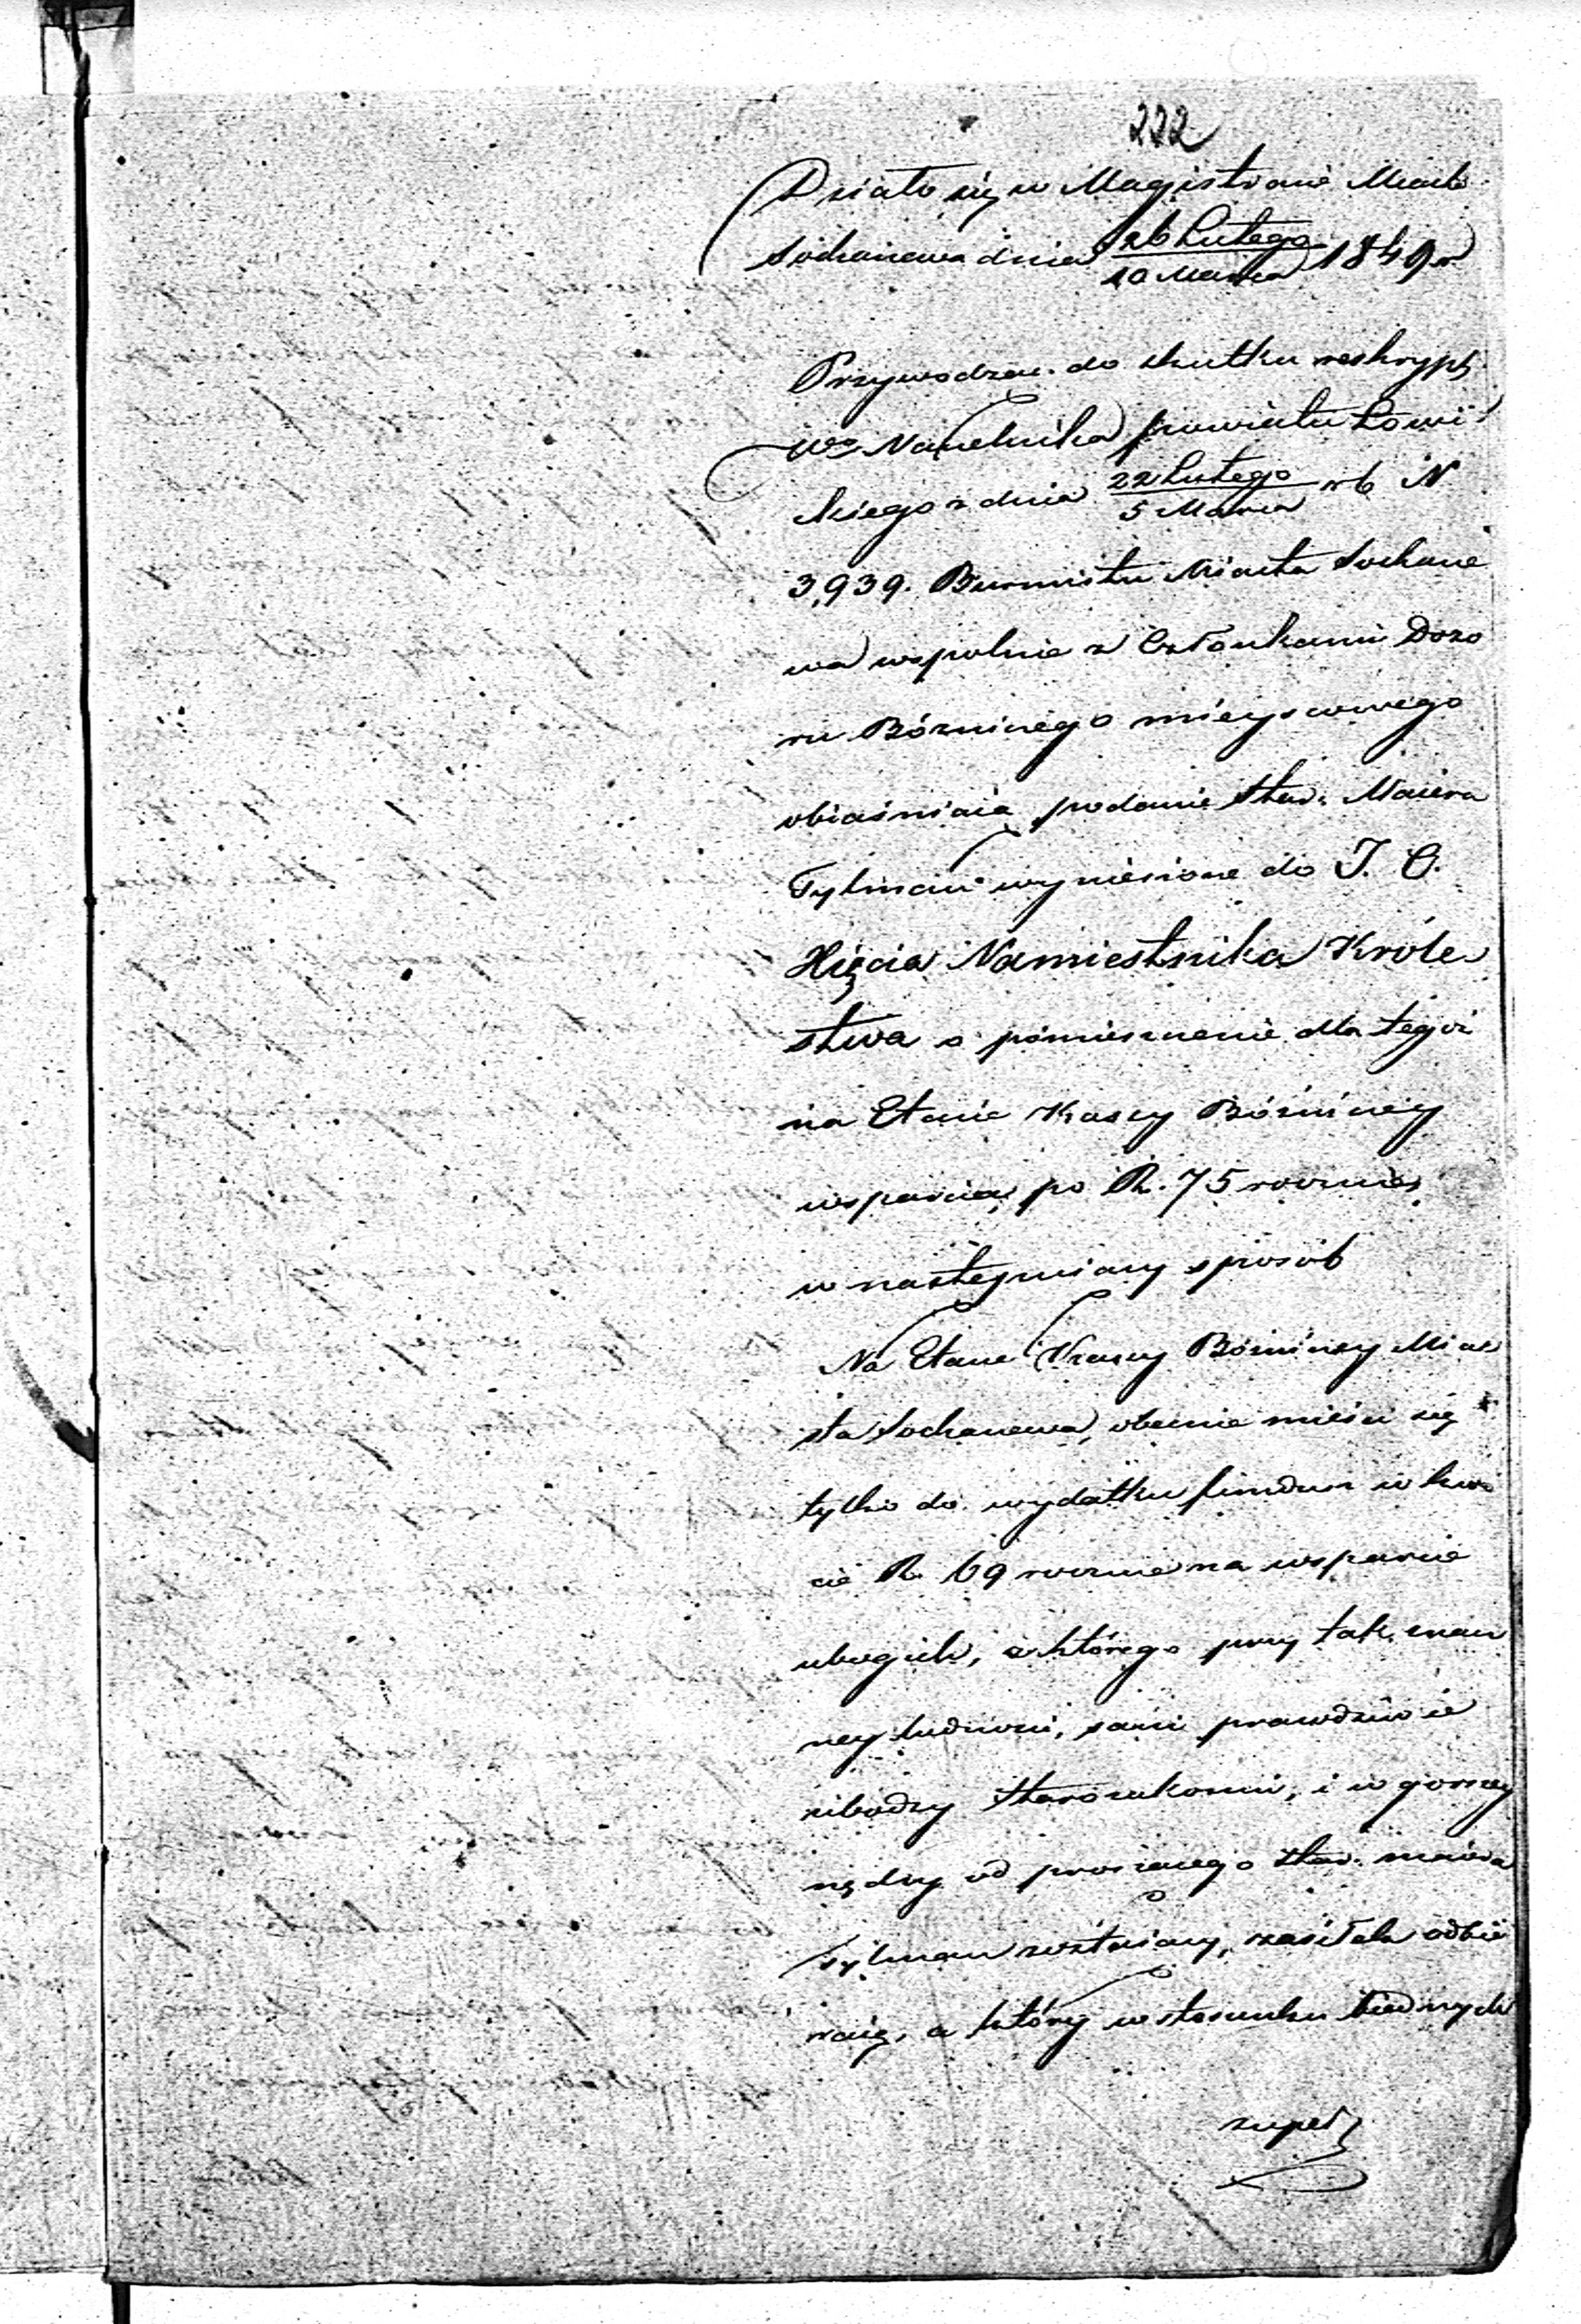 222
Działo się w Magistracie Miasta
Sochaczewa dnia 26 Lutego / 10 Marca 1849 r
Przywodząc do skutku reskrypt
Wo Naczelnika powiatu Łowi
kiego z dnia 22 Lutego / 5 Marca r b N
3,939. Burmistrz Miasta Sochacze
wa wspolnie z Członkami Dozo
ru Bóżnicznego mieyscowego
obiaśniaią podanie Star. Maiera
Tylman wyniesione do J. O.
Xięcia Namiestnika Króle
stwa o pomieszczenie dla tegoż
na Etacie Kassy Bóżniczney
wsparcia po R. 75 rocznie,
w następuiący sposób
Na Etacie Kassy Bóżniczney Mia
sta Sochaczewa, obecnie mieści się
tylko do wydatku fundusz w kwo
cie R. 69 rocznie na wsparcie
ubogich, z którego przy tak znacz
ney ludności, sami prawdziwie
ubodzy starozakonni, i w gorszey
nędzy od proszącego Star. Maiera
Tylman zostaiący, zasiłek odbie
raią, a który w stosunku biednych
zupeł